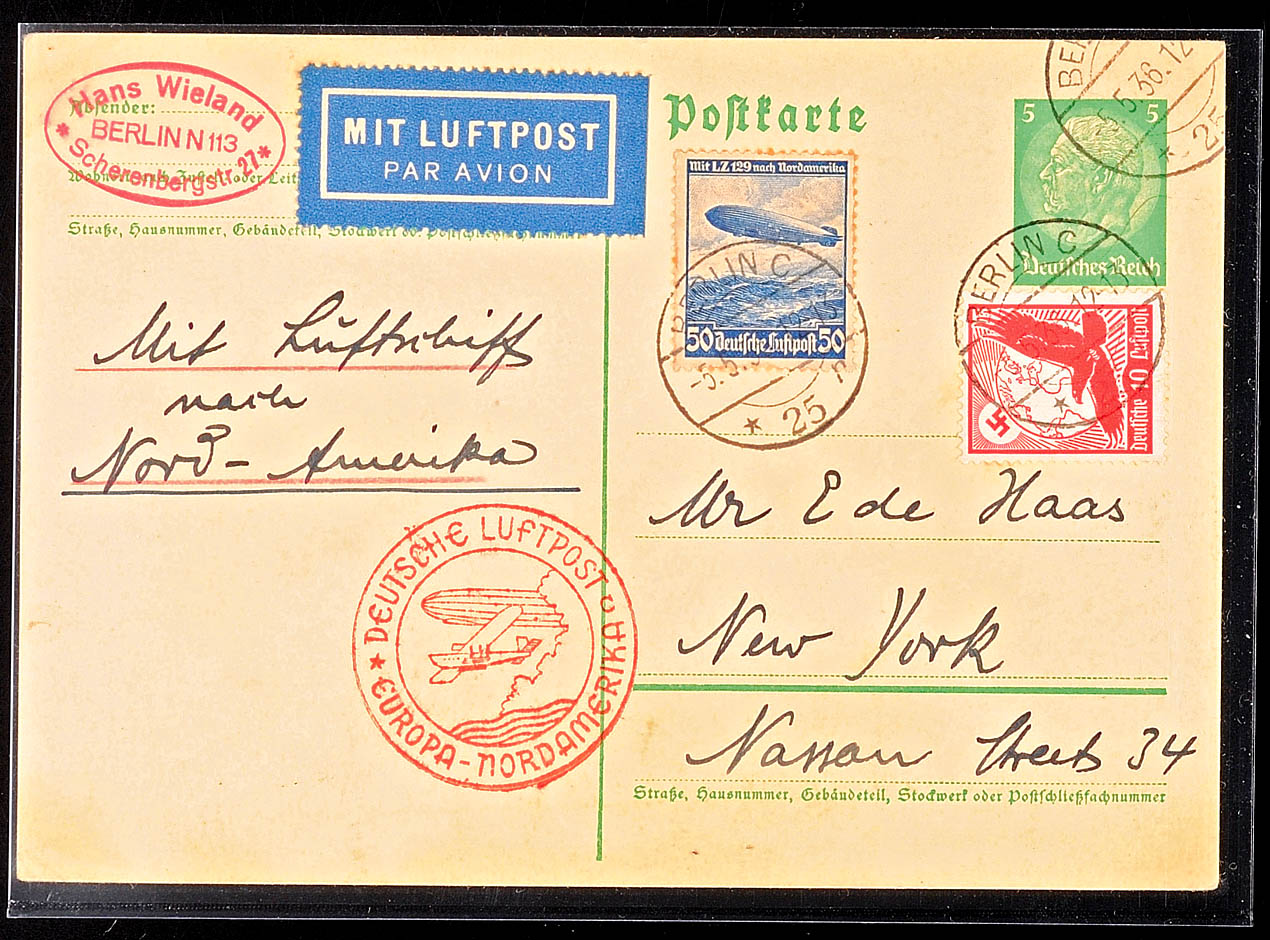 Hans Wieland
BERLIN N 113
* Scherenbergstr. 27 *
Absender:
Straße, Hausnummer, Gebäudeteil, Stockwerk od. Postschließfachnummer
MIT LUFTPOST
PAR AVION
Postkarte
Mit LZ 129 nach Nordamerika
50 Deutsche Luftpost 50
BERLIN C
-5.5.3
* 25
5 5
Deutsches Reich
5.36.12
* 25
BERLIN C
12-13
*
Deutsche 10 Luftpost
Mit Luftschiff
nach
Nord-Amerika
* DEUTSCHE LUFTPOST
EUROPA-NORDAMERIKA
Mr Ede Haas
New York
Nassau Street 34
Straße, Hausnummer, Gebäudeteil, Stockwerk oder Postschließfachnummer